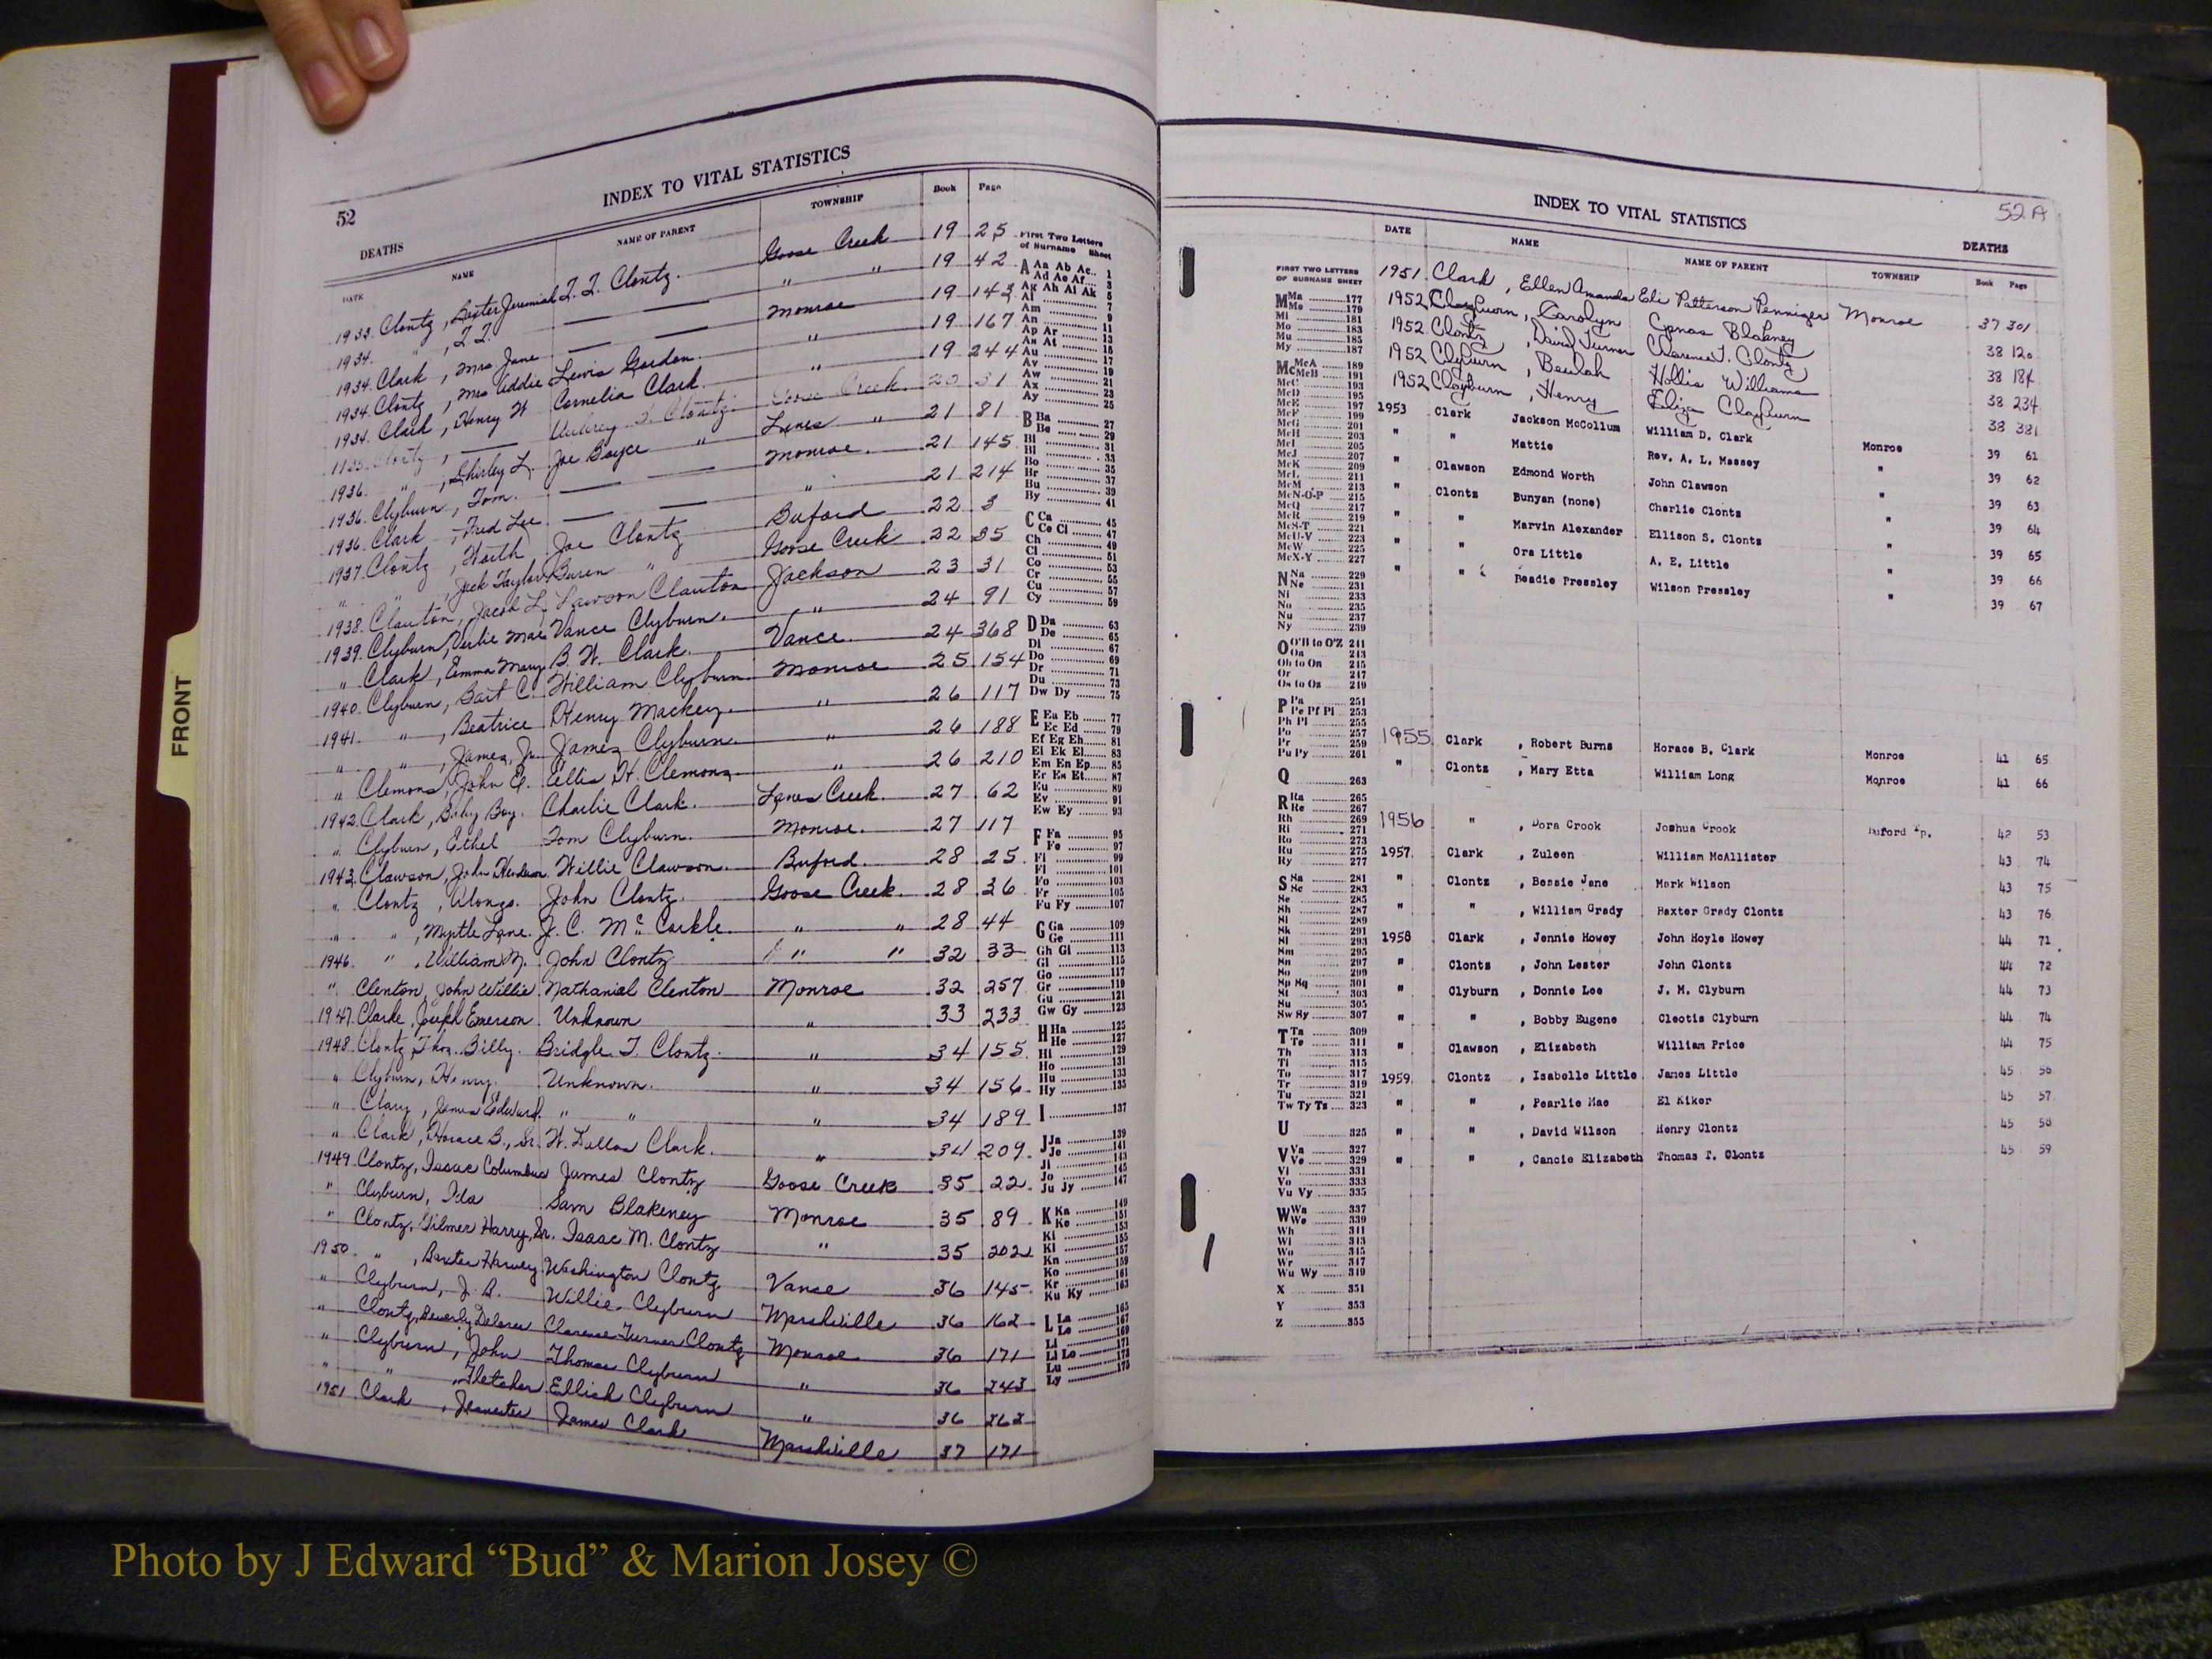 FRONT
52
INDEX TO VITAL STATISTICS
DEATHS
DATE NAME NAME OF PARENT TOWNSHIP Book Page
1933. Clontz, Baxter Jeremiah T. T. Clontz. Goose Creek 19 25
1934. " , T. T. " " 19 42
1934. Clark, Mrs Jane Monroe 19 143
1934. Clontz, Mrs Addie Lewis Gordon. " 19 167
1934. Clark, Henry W Cornelia Clark. " 19 244
1935. Clontz, Aubrey T. Clontz. Goose Creek. 20 31
1936. " , Shirley L. Joe Boyce " Lanes " 21 81
1936. Clyburn, Tom. Monroe. 21 145
1936. Clark, Fred Lee " 21 214
1937. Clontz, Worth Joe Clontz Buford 22 3
" " , Jack Taylor Buren " Goose Creek 22 35
1938. Clanton, Jacob L. Lawson Clanton Jackson 23 31
1939. Clyburn, Verlie Mae Vance Clyburn. " 24 91
" Clark, Emma Mary B. W. Clark. Vance. 24 368
1940. Clyburn, Bait C. William Clyburn Monroe 25 154
1941. " , Beatrice Henry Mackey. " 26 117
" " , James, Jr. James Clyburn. " 26 188
" Clemons, John E. Ellis H. Clemons " 26 210
1942. Clark, Baby Boy. Charlie Clark. Lanes Creek. 27 62
" Clyburn, Ethel Tom Clyburn. Monroe. 27 117
1943. Clawson, John Willie Clawson. Buford. 28 25
" Clontz, Alonzo. John Clontz. Goose Creek. 28 36
" " , Myrtle Lane. J. C. McCorkle. " " 28 44
1946. " , William M. John Clontz " " 32 33
" Clenton, John Willie. Nathanial Clenton Monroe 32 257
1947. Clarke, Joseph Emerson. Unknown " 33 233
1948. Clontz, Thos. Billy. Bridgle. T. Clontz. " 34 155
" Clyburn, Henry. Unknown. " 34 156
" Clary, James Edward. " " " 34 189
" Clark, Horace B., Sr. W. Clark. " 34 209.
1949. Clontz, Isaac Columbus James Clontz Goose Creek 35 22
" Clyburn, Ida Sam Blakeney Monroe 35 89
" Clontz, Gilmer Harry, Sr. Isaac M. Clontz " 35 202
1950. " , Baxter Harvey. Washington Clontz Vance 36 145
" Clyburn, J. A. Willie Clyburn Marshville 36 162
" Clontz, Beverly Delores Clarence Turner Clontz Monroe 36 171
" Clyburn, John Thomas Clyburn " 36 243
" " , Fletcher Clyburn " 36 262
1951 Clark, James Clark Marshville 37 171
First Two Letters
of Surname Sheet
A Aa Ab Ac.. 1
Ad Ae Af... 3
Ag Ah Ai Ak 5
Al 7
Am 9
An 11
Ap Ar 13
As At 15
Au 17
Av 19
Aw 21
Ax 23
Ay 25
B Ba 27
Be 29
Bi 31
Bl 33
Bo 35
Br 37
Bu 39
By 41
C Ca 45
Ce Ci 47
Ch 49
Cl 51
Co 53
Cr 55
Cu 57
Cy 59
D Da 63
De 65
Di 67
Do 69
Dr 71
Du 73
Dw Dy 75
E Ea Eb 77
Ec Ed 79
Ef Eg Eh 81
Ei Ek El 83
Em En Ep 85
Er Es Et 87
Eu 89
Ev 91
Ew Ey 93
F Fa 95
Fe 97
Fi 99
Fl 101
Fo 103
Fr 105
Fu Fy 107
G Ga 109
Ge 111
Gh Gi 113
Gl 115
Go 117
Gr 119
Gu 121
Gw Gy 123
H Ha 125
He 127
Hi 129
Ho 131
Hu 133
Hy 135
I 137
J Ja 139
Je 141
Ji 143
Jo 145
Ju Jy 147
K Ka 149
Ke 151
Ki 153
Kl 155
Kn 157
Ko 159
Kr 161
Ku Ky 163
L La 165
Le 167
Li 169
Ll Lo 171
Lu 173
Ly 175
52A
INDEX TO VITAL STATISTICS
DEATHS
DATE NAME NAME OF PARENT TOWNSHIP Book Page
1951. Clark, Ellen Amanda Eli Patterson Penniger Monroe 37 301
1952 Clayburn, Carolyn Blakney 38 120
1952 Clontz, David Turner Clarence T. Clontz 38 184
1952 Clyburn, Beulah Hollis Williams 38 234
1952 Clayburn, Henry Eliza Clayburn 38 381
1953 Clark Jackson McCollum William D. Clark Monroe 39 61
" " Mattie Rev. A. L. Massey " 39 62
" Clawson Edmond Worth John Clawson " 39 63
" Clontz Bunyan (none) Charlie Clontz " 39 64
" " Marvin Alexander Ellison S. Clontz " 39 65
" " Ora Little A. E. Little " 39 66
" " Beadie Pressley Wilson Pressley " 39 67
1955 Clark , Robert Burns Horace B. Clark Monroe 41 65
" Clontz , Mary Etta William Long Monroe 41 66
1956 " , Dora Crook Joshua Crook Buford Tp. 42 53
1957 Clark , Zuleen William McAllister 43 74
" Clontz , Bessie Jane Mark Wilson 43 75
" " , William Grady Baxter Grady Clontz 43 76
1958 Clark , Jennie Howey John Hoyle Howey 44 71
" Clontz , John Lester John Clontz 44 72
" Clyburn , Donnie Lee J. M. Clyburn 44 73
" " , Bobby Eugene Cleotis Clyburn 44 74
" Clawson , Elizabeth William Price 44 75
1959 Clontz , Isabelle Little James Little 45 56
" " , Pearlie Mae El Kiker 45 57
" " , David Wilson Henry Clontz 45 58
" " , Cancie Elizabeth Thomas T. Clontz 45 59
FIRST TWO LETTERS
OF SURNAME SHEET
M Ma 177
Me 179
Mi 181
Mo 183
Mu 185
My 187
Mc McA 189
McB 191
McC 193
McD 195
McE 197
McF 199
McG 201
McH 203
McI 205
McJ 207
McK 209
McL 211
McM 213
McN-O-P 215
McQ 217
McR 219
McS-T 221
McU-V 223
McW 225
McX-Y 227
N Na 229
Ne 231
Ni 233
No 235
Nu 237
Ny 239
O O'B to O'Z 241
Oa 243
Ob to On 245
Or 247
Os to Oz 249
P Pa 251
Pe Pf Pi 253
Ph Pl 255
Po 257
Pr 259
Pu Py 261
Q 263
R Ra 265
Re 267
Rh 269
Ri 271
Ro 273
Ru 275
Ry 277
S Sa 281
Sc 283
Se 285
Sh 287
Si 289
Sk 291
Sl 293
Sm 295
Sn 297
So 299
Sp Sq 301
St 303
Su 305
Sw Sy 307
T Ta 309
Te 311
Th 313
Ti 315
To 317
Tr 319
Tu 321
Tw Ty Tz 323
U 325
V Va 327
Ve 329
Vi 331
Vo 333
Vu Vy 335
W Wa 337
We 339
Wh 341
Wi 343
Wo 345
Wr 347
Wu Wy 349
X 351
Y 353
Z 355
Photo by J Edward “Bud” & Marion Josey ©